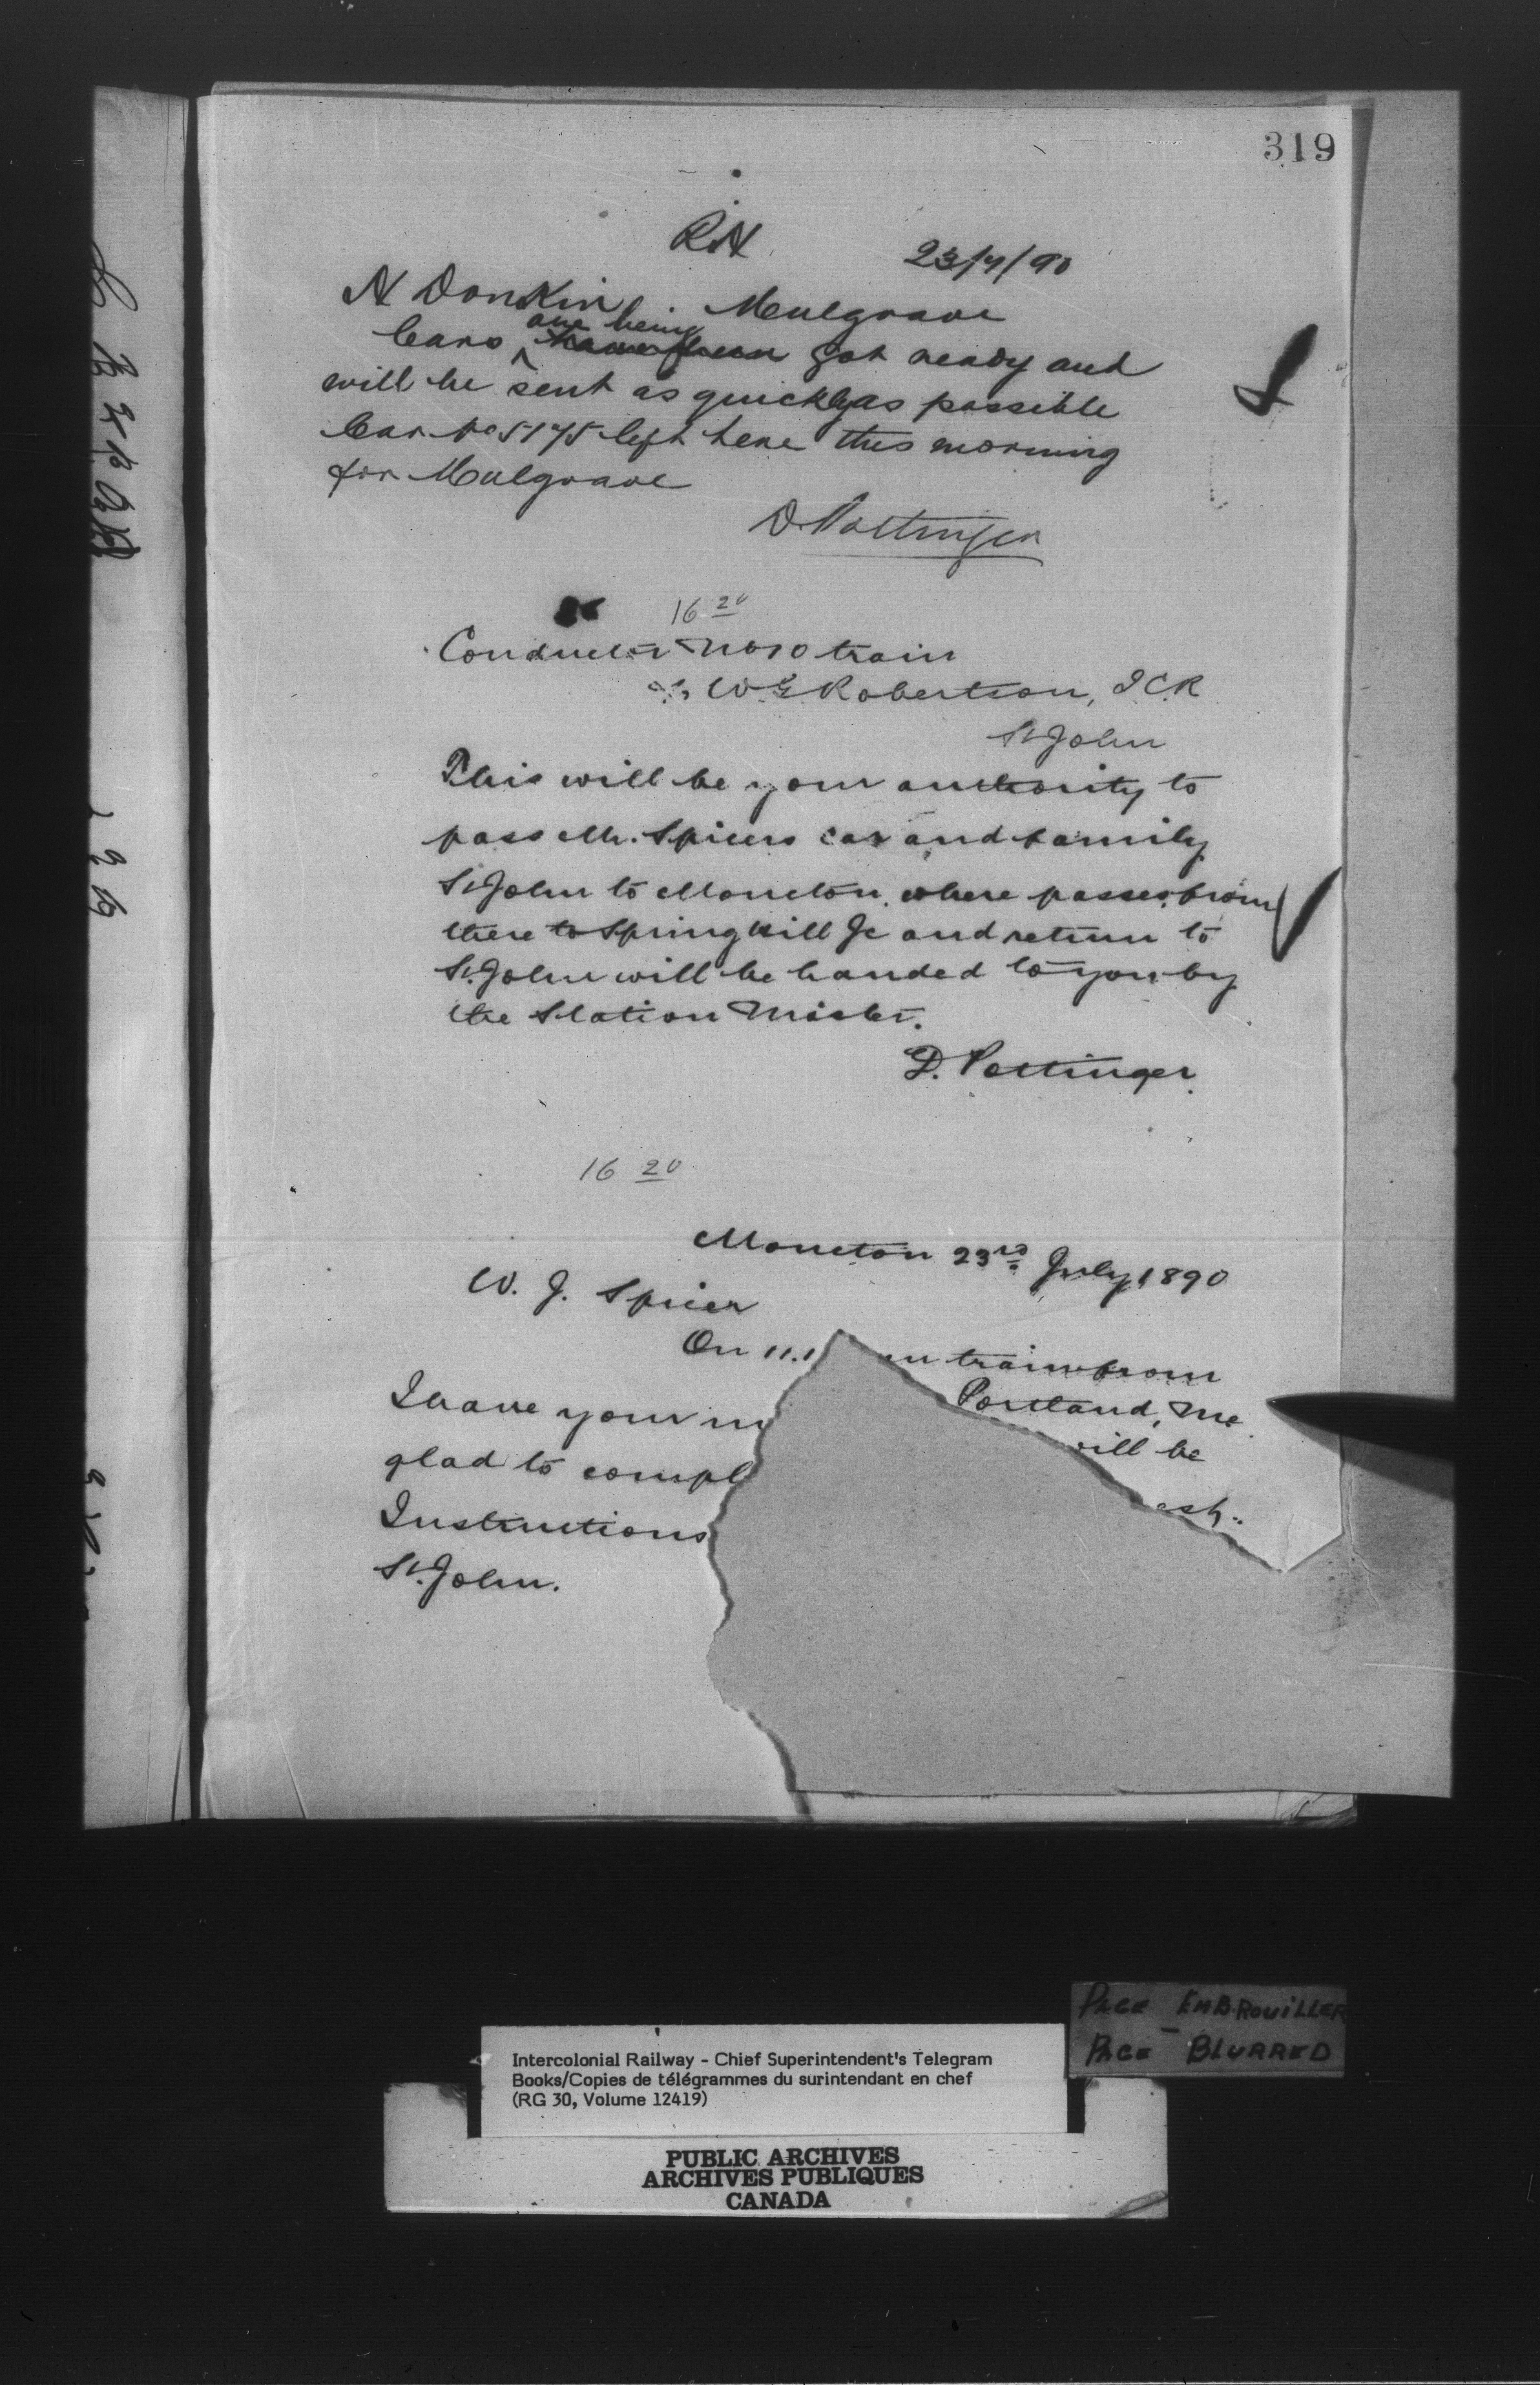 319
RN
23/7/90
N Donkin. Mulgrave
Cars are being have been got ready and
will be sent as quickly as possible
Car No 5175 left here this morning
for Mulgrave
D. Pottinger
16 20
Conductor No 10 train
W. G. Robertson, I.C.R
St John
This will be your authority to
pass Mr. Spicers car and family
St John to Moncton, where passes from
there to Springhill Jc and return to
St. John will be handed to you by
the Station Master.
D. Pottinger.
16 20
Moncton 23rd July 1890
W. J. Spicer
On 11.1 train from
Portland, Me
I have your
will be
glad to compl
Instructions
St. John.
PAGE EMBROUILLER
PAGE - BLURRED
Intercolonial Railway - Chief Superintendent's Telegram
Books/Copies de télégrammes du surintendant en chef
(RG 30, Volume 12419)
PUBLIC ARCHIVES
ARCHIVES PUBLIQUES
CANADA